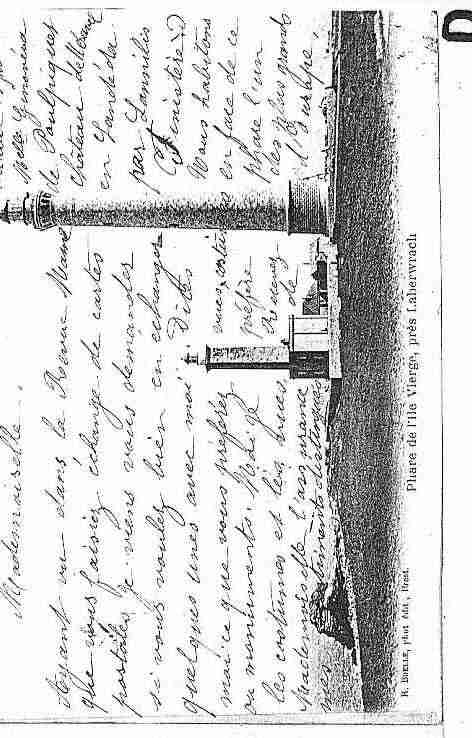 Mademoiselle.
Ayant vu dans la Revue Mame
que vous faisiez échange de cartes
postales je viens vous demander
si vous voulez bien en échanger
quelques unes avec moi. Dites
moi ce que vous préférez
ou monuments. Moi je préfère
les costumes et les vues
Recevez
Mademoiselle l'assurance de
mes sentiments distingués
Melle Geneviève
de Poulpiquet
château
en Landéda
par Lannilis
Finistère
Nous habitons
en face de ce
phare l'un
des plus grands
Phare de l'île Vierge, près Laberwrach
phot. édit., Brest.